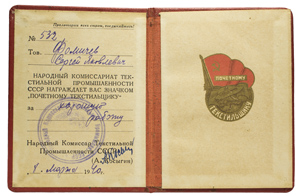 № 532
Тов. Фомичев
Сергей Яковлевич
НАРОДНЫЙ КОМИССАРИАТ ТЕК-
СТИЛЬНОЙ ПРОМЫШЛЕННОСТИ
СССР НАГРАЖДАЕТ ВАС ЗНАЧКОМ
„ПОЧЕТНОМУ ТЕКСТИЛЬЩИКУ"
за хорошую
работу
Народный Комиссар Текстильной
Промышленности СССР
(А. Косыгин)
марта 1940 г.
ПОЧЕТНОМУ
ТЕКСТИЛЬЩИКУ